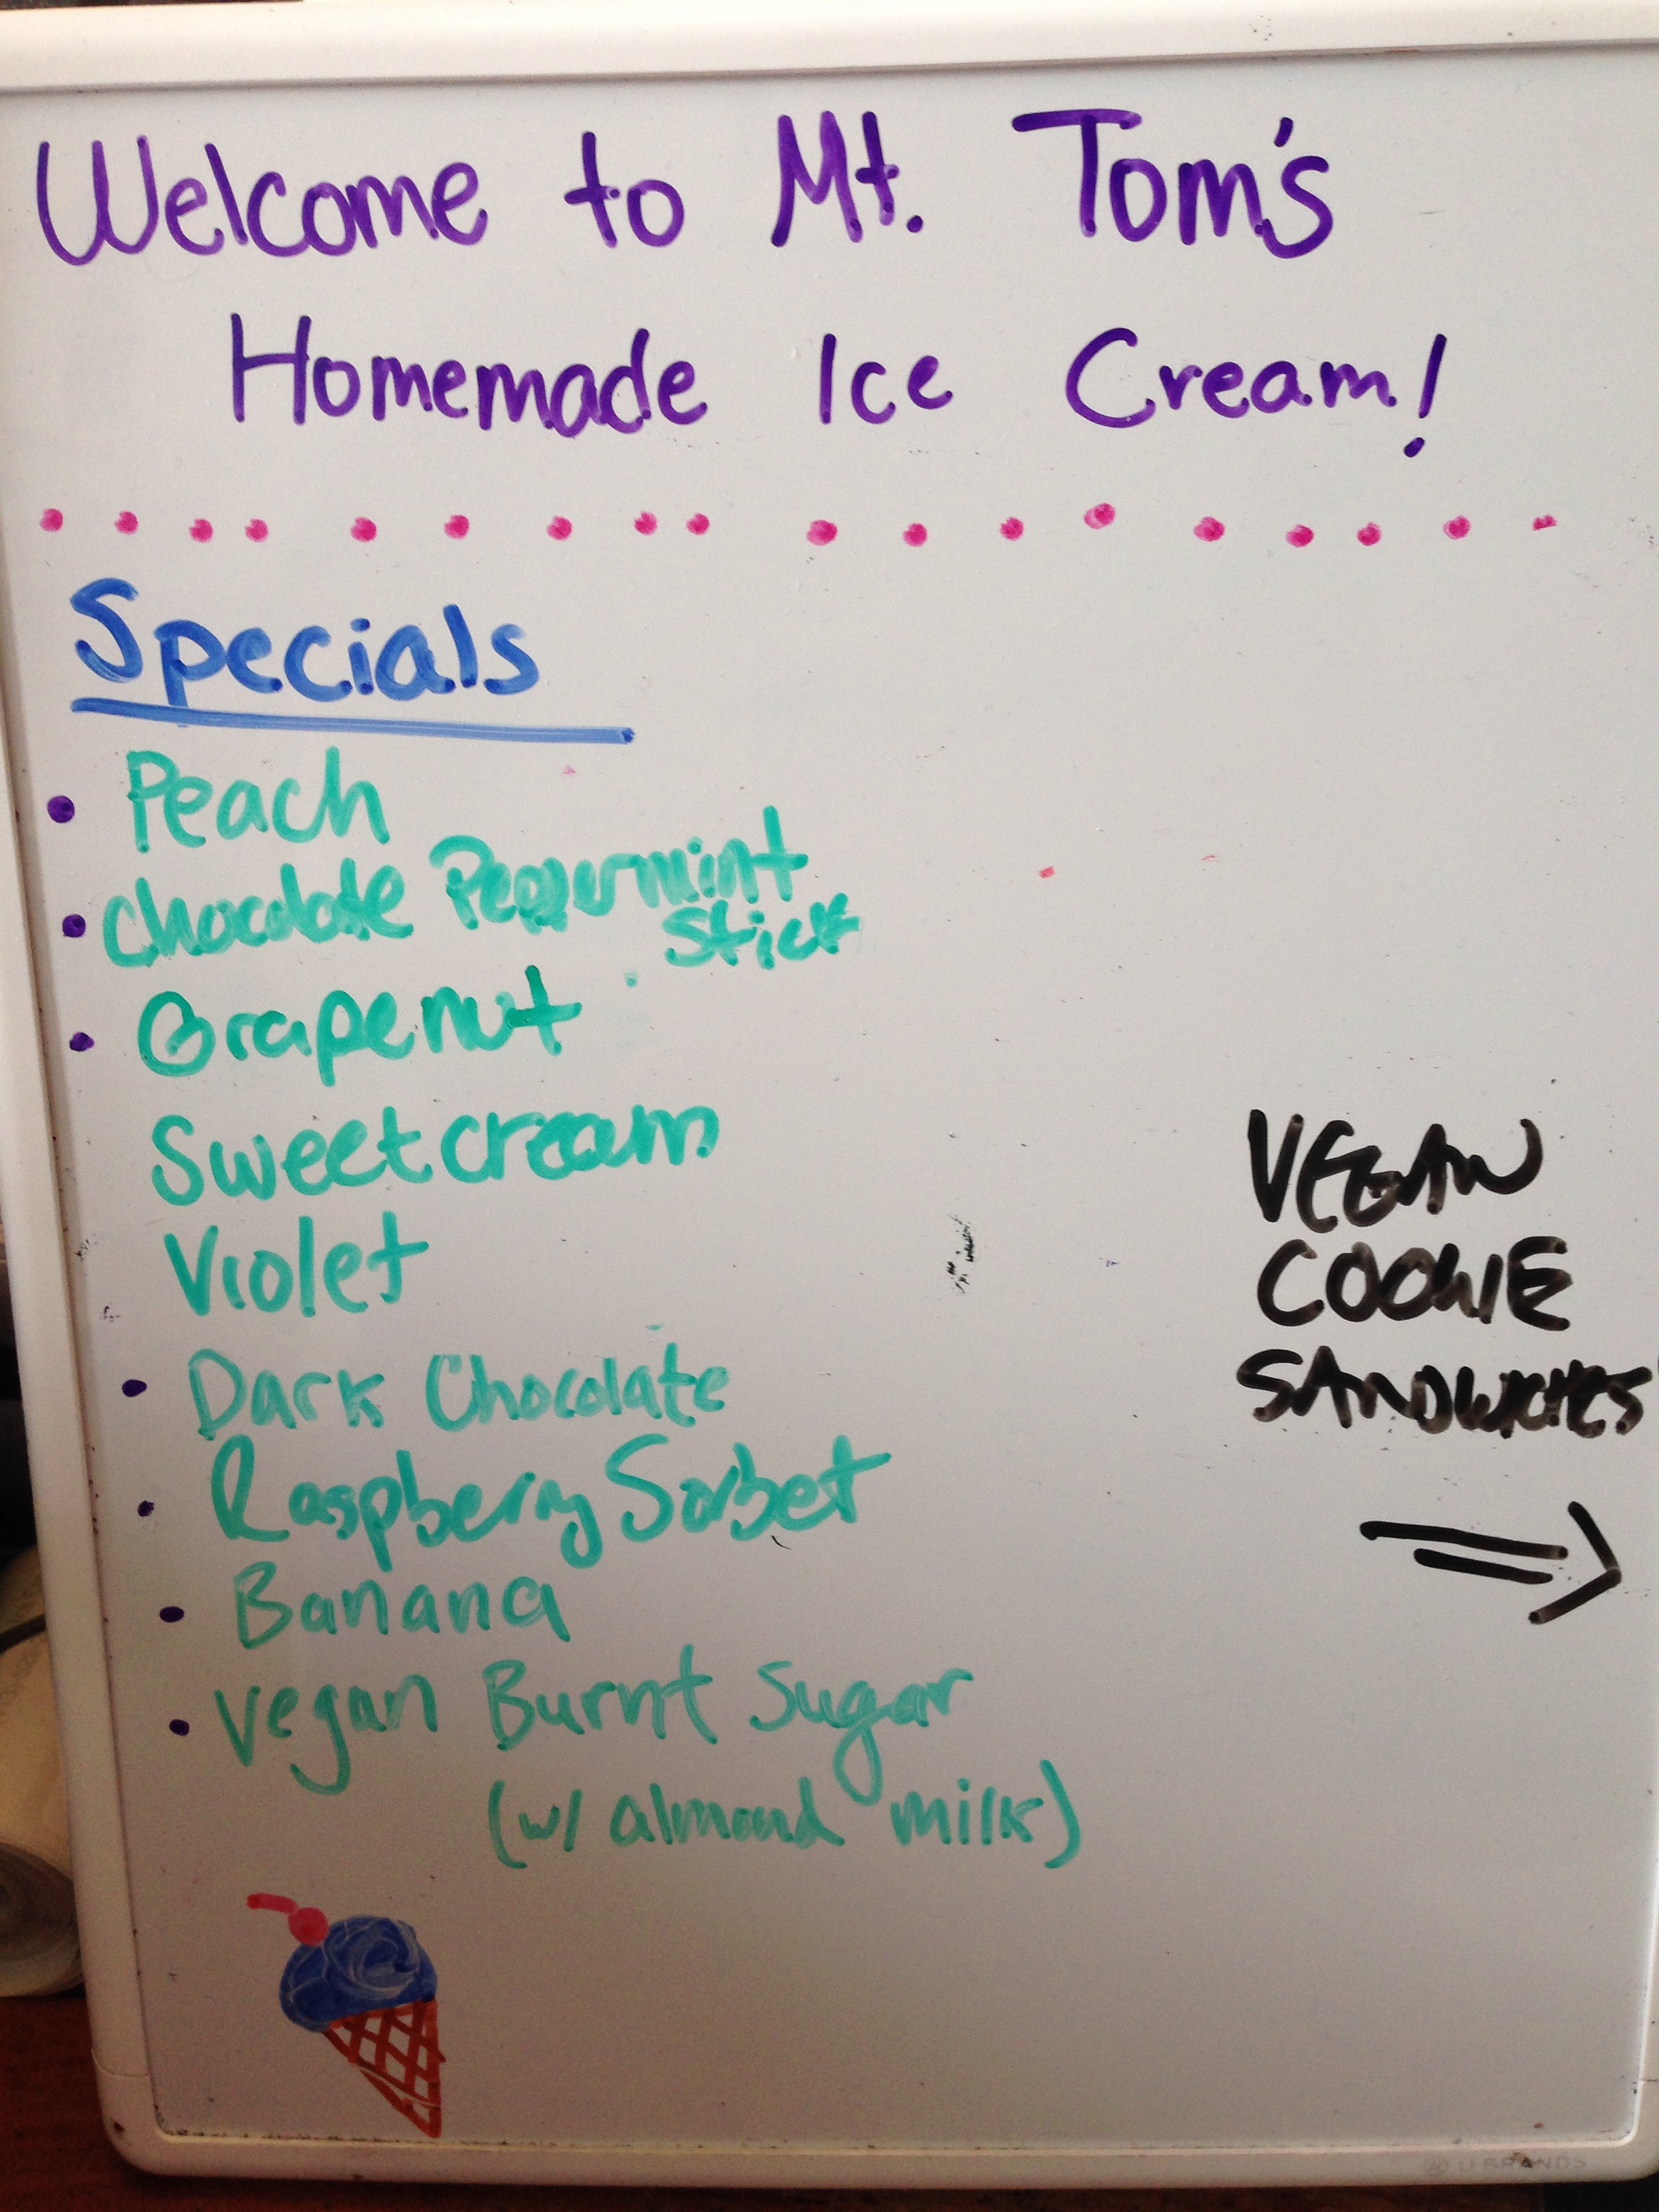 Welcome to Mt. Tom's
Homemade Ice Cream!
Specials
• Peach
• Chocolate Peppermint
Stick
• Grapenut
Sweetcream
Violet
• Dark Chocolate
• Raspberry Sorbet
• Banana
• Vegan Burnt Sugar
(w/ almond milk)
VEGAN
COOKIE
SANDWICHES
⇒
U BRANDS